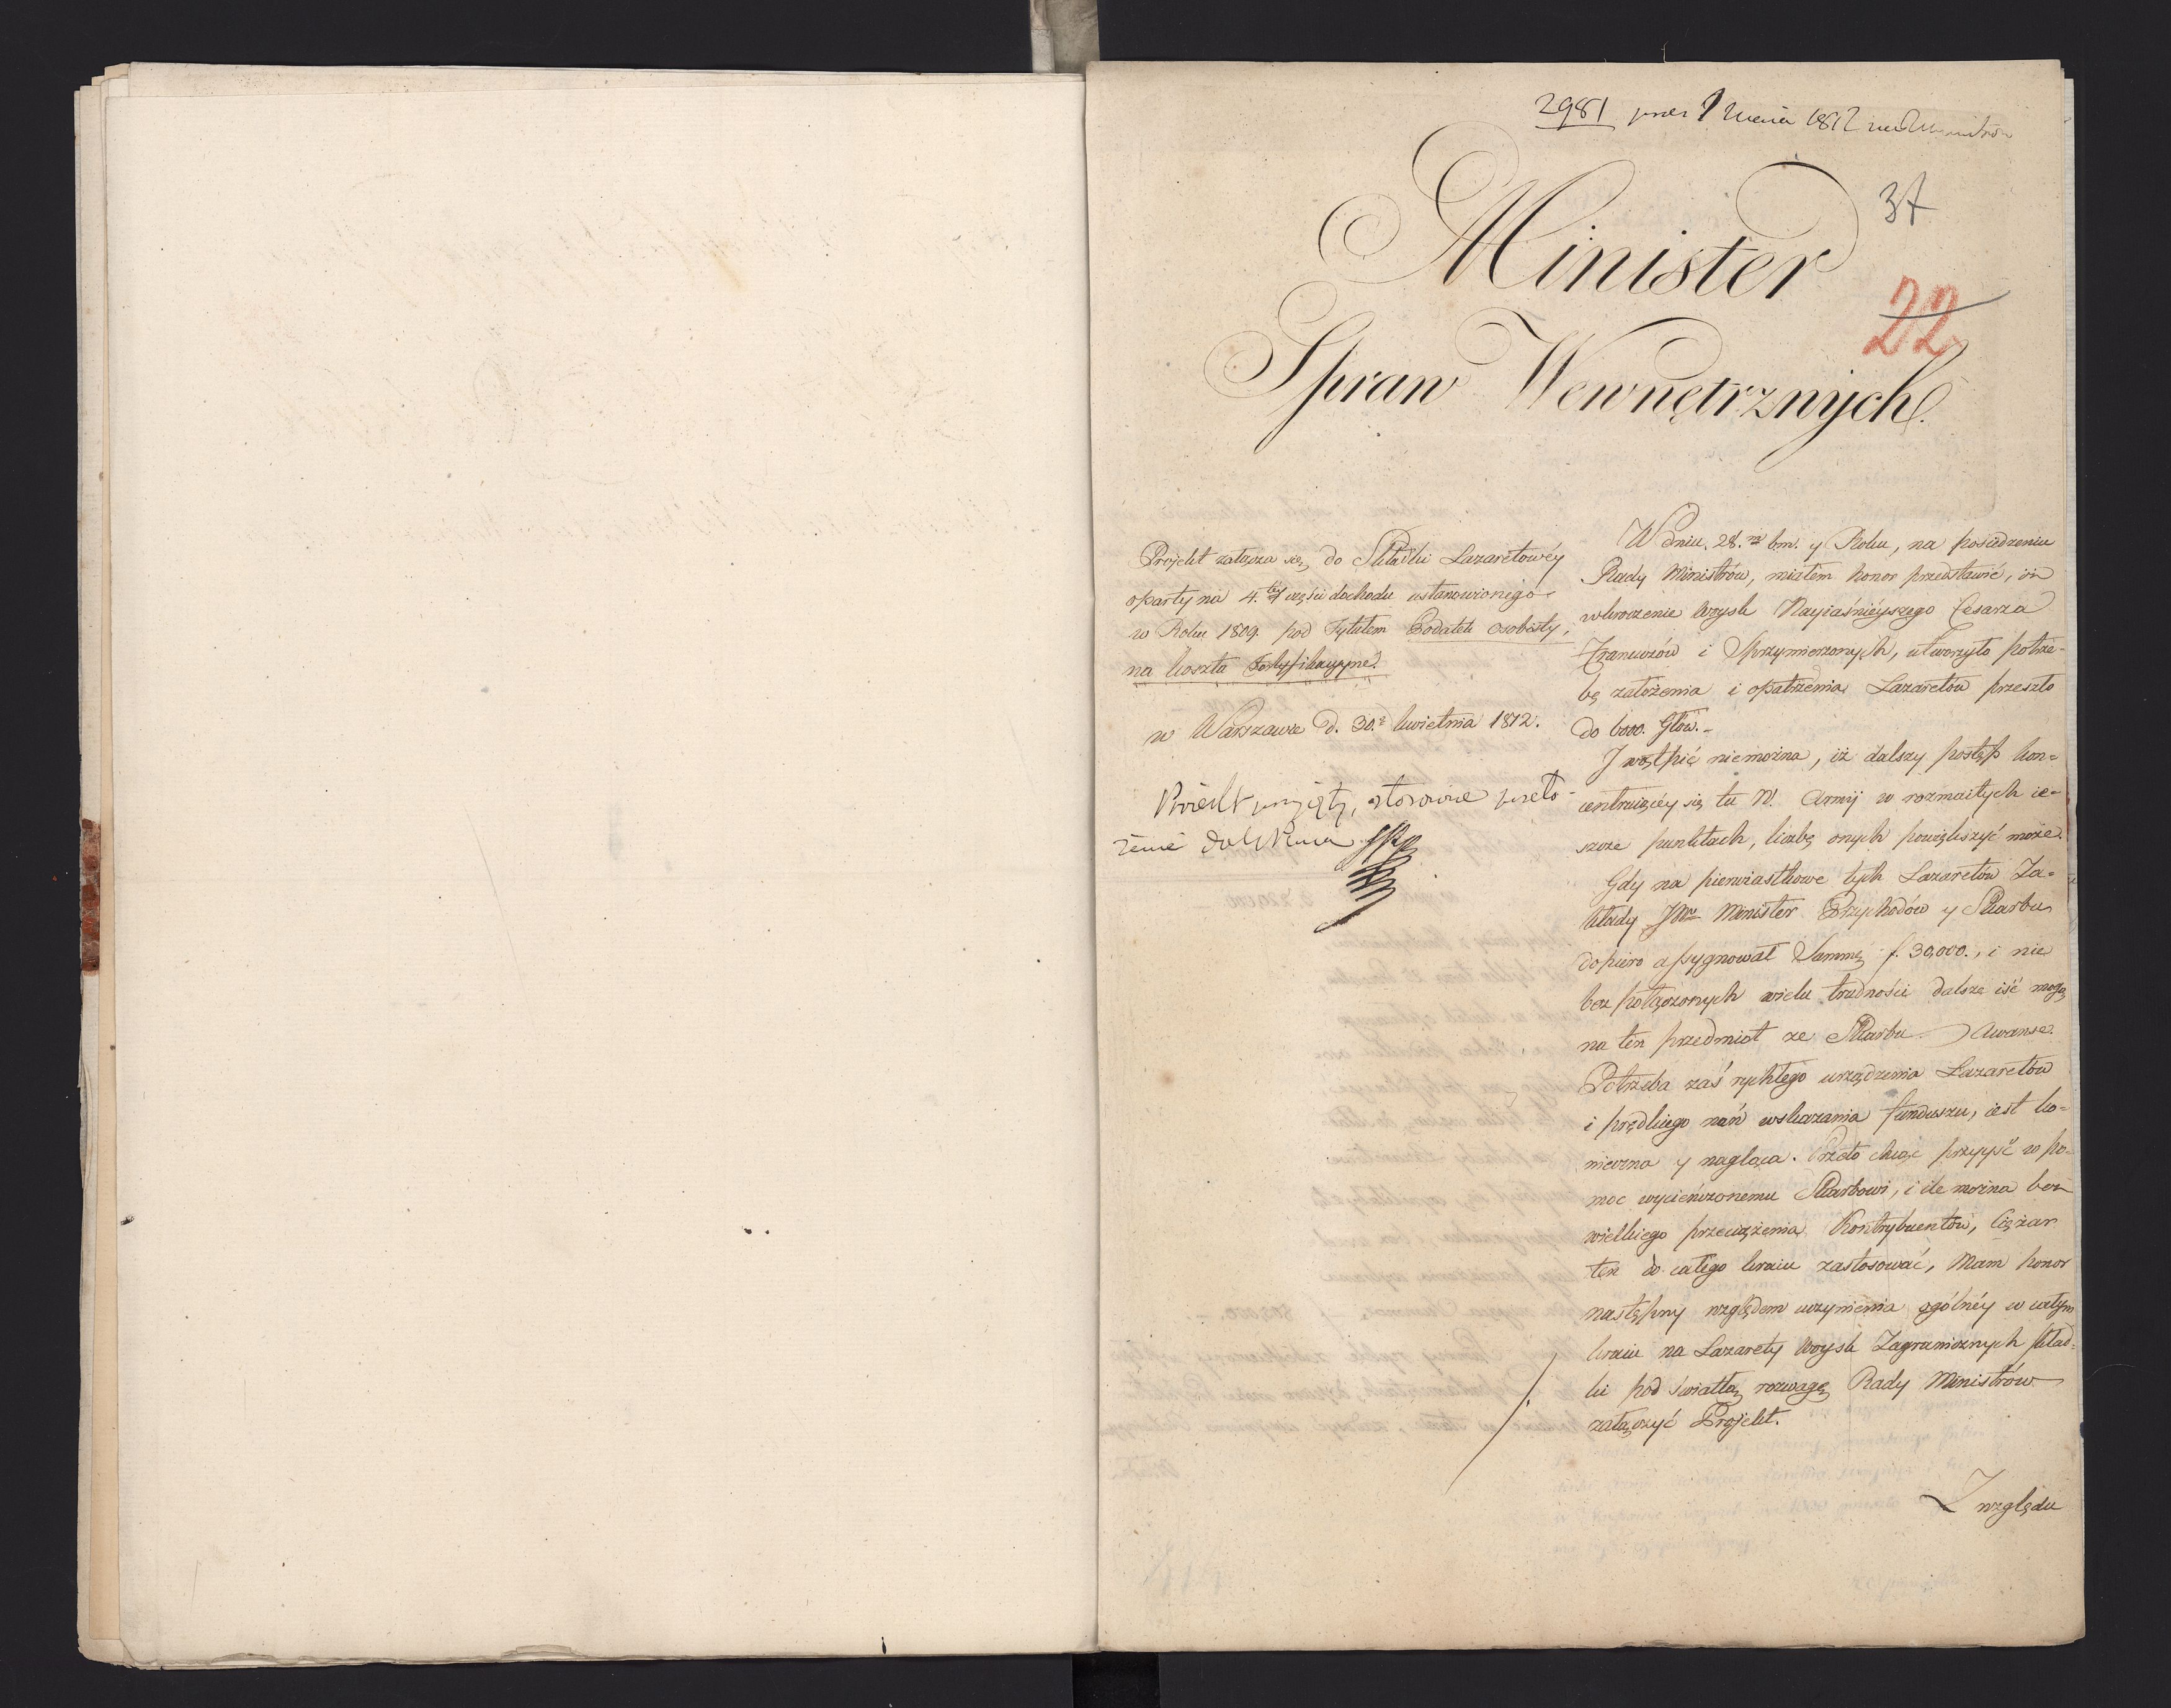 2981 1812
37
Minister
22
Spraw Wewnętrznych.
Projekt załącza się, do Składki Lazaretowéy
oparty na 4.téy części dochodu ustanowionego
w Roku 1809. pod Tytułem Podatek osobisty,
na koszta Fortyfikacyjne.
w Warszawie d. 30.º kwietnia 1812.
Proiekt przyięty, stosowne przeło-
żenie do JKMci
W dniu, 28.m b.m. y Roku, na posiedzeniu
Rady Ministrów, miałem honor przedstawić, iż
wkroczenie woysk Nayiaśnieyszego Cesarza
Francuzów i Sprzymierzonych, utworzyło potrze-
bę założenia i opatrzenia Lazaretów przeszło
do 6000. Głów.-
I wątpić niemożna, iż dalszy postęp kon-
centruiącéy się tu W. Armij w rozmaitych ie-
szcze punktach, liczbę onych powiększyć może.
Gdy na pierwiastkowe tych Lazaretów Za-
kłady JW. Minister Przychodów y Skarbu
dopiero assygnował Summę f. 30,000., i nie
bez połączonych wielu trudności dalsze iść mogą
na ten przedmiot ze Skarbu Awanse.
Potrzeba zaś rychłego urządzenia Lazaretów
i prędkiego nań wskazania funduszu, iest ko-
nieczna y nagląca. Przeto chcąc przyyść w po-
moc wycieńczonemu Skarbowi, i ile można bez
wielkiego przeciążenia Kontrybuentów, Ciężar
ten do całego kraiu zastosować, Mam honor
następny względem uczynienia ogólnéy w całym
kraiu na Lazarety woysk Zagranicznych skład-
ki pod światłą rozwagę Rady Ministrów
załączyć Projekt.
Z względu